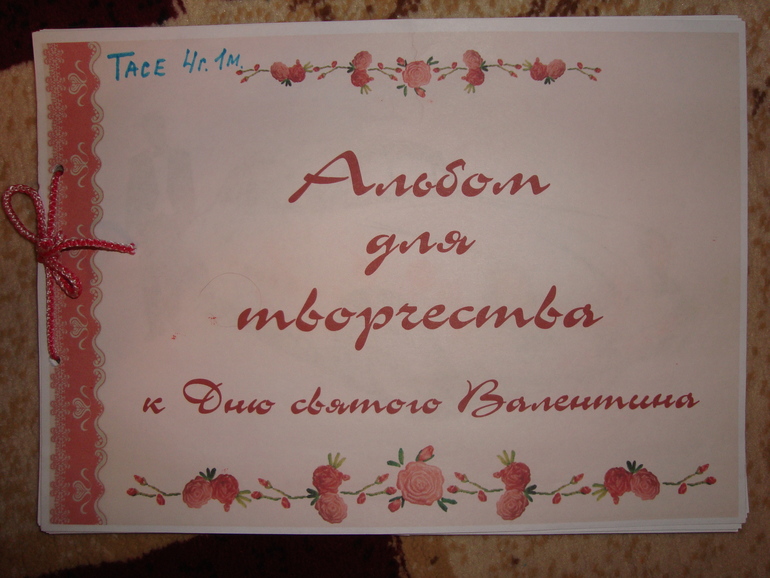 ТАСЕ 4г. 1м.
Альбом
для
творчества
к Дню святого Валентина